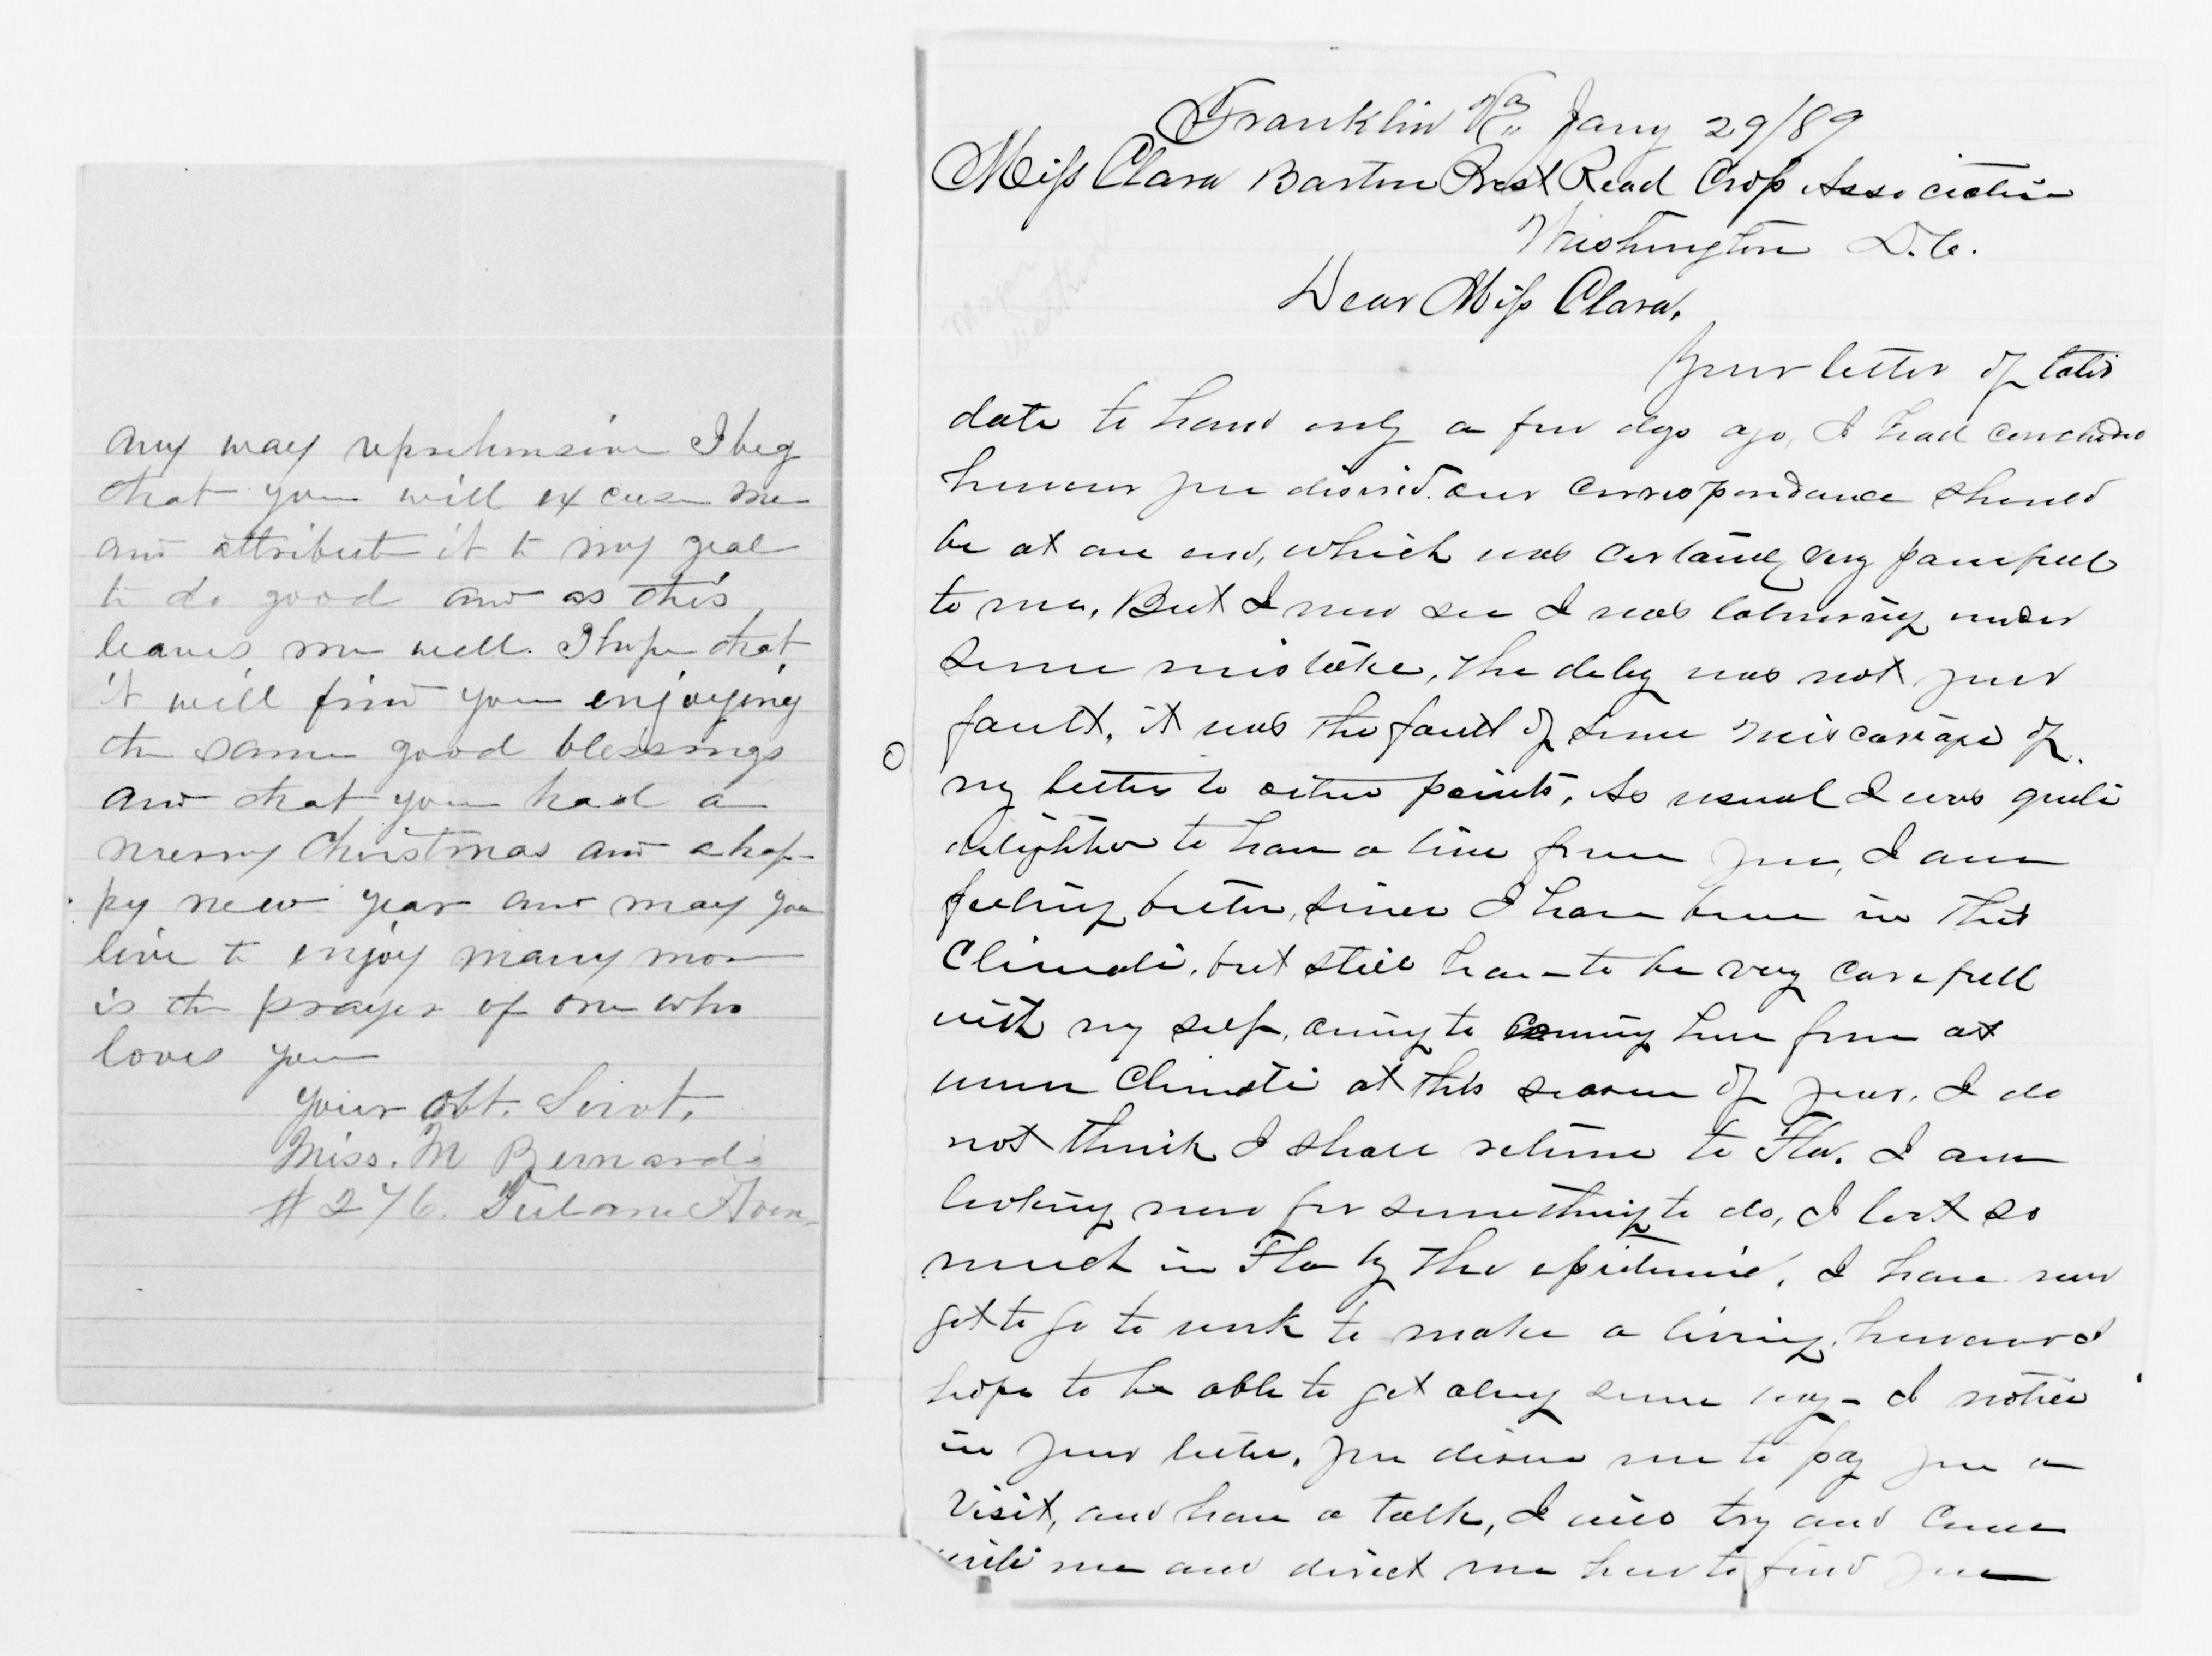 any way reprehensive I beg
that you will excuse me
and attribute it to my zeal
to do good and as this
leaves me well. I hope that
it will find you enjoying
the same good blessings
and that you had a
merry Christmas and a hap-
py new year and may you
live to enjoy many more
is the prayer of one who
loves you
your obt. Servt,
Miss. M Bernard
# 276. Tulane Aven
Franklin Va Jany 29/89
Miss Clara Barton Prest Read Cross Association
Washington D.C.
Dear Miss Clara,
Your letter of late
date to hand only a few dys ago, I had concluded
however you disired our correspondance should
be at an end, which was certainly very painfull
to me, But I now see I was labouring under
some mistake, the delay was not your
fault, it was the fault of some miscariage of
my letter to either points, As usual I was quite
delighted to have a line from you, I am
feeling better, since I have been in this
Climate, but still have to be very carefull
with my self, owing to coming here from at
warm Climate at this season of year. I do
not think I shall return to Fla. I am
looking now for something to do, I lost so
much in Fla by the epidemic, I have now
got to go to work to make a living, however I
hope to be able to get along some way - I notice
in your letter, you disire me to pay you a
visit, and have a talk, I will try and come
write me and direct me how to find you
Major